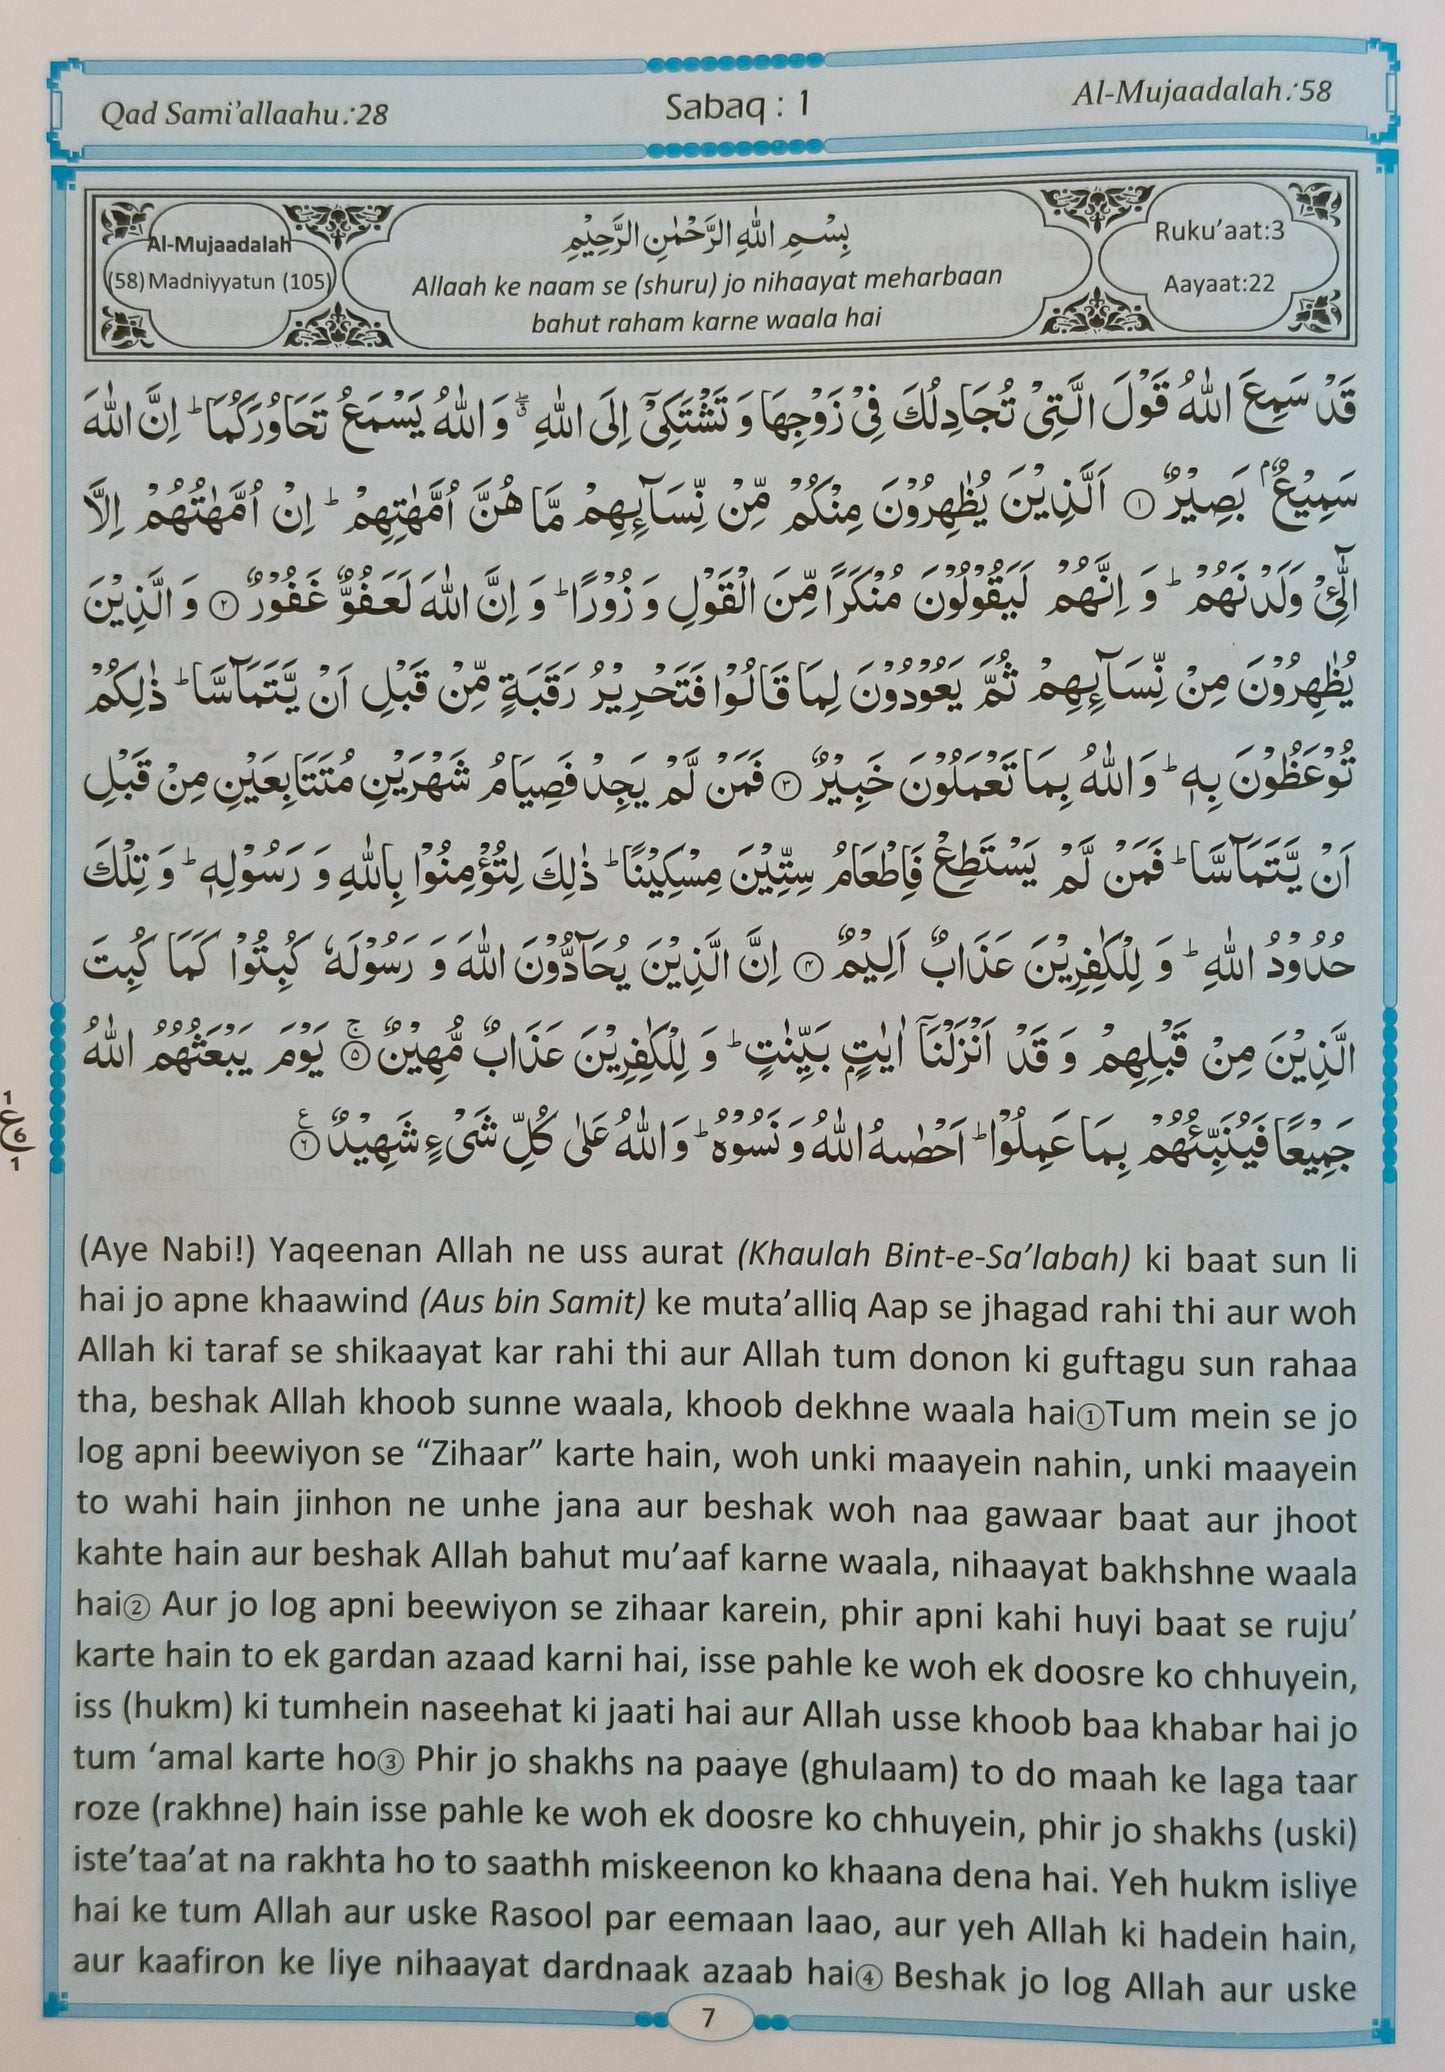 Qad Sami’allaahu:28 Sabaq : 1 Al-Mujaadalah:58
Al-Mujaadalah
(58) Madniyyatun (105)
بِسْمِ اللّٰهِ الرَّحْمٰنِ الرَّحِيْمِ
Allaah ke naam se (shuru) jo nihaayat meharbaan
bahut raham karne waala hai
Ruku’aat:3
Aayaat:22
قَدْ سَمِعَ اللّٰهُ قَوْلَ الَّتِیْ تُجَادِلُكَ فِیْ زَوْجِهَا وَ تَشْتَكِیْۤ اِلَی اللّٰهِ ۖۗ وَ اللّٰهُ یَسْمَعُ تَحَاوُرَكُمَا ؕ اِنَّ اللّٰهَ
سَمِیْعٌۢ بَصِیْرٌ ۝۱ اَلَّذِیْنَ یُظٰهِرُوْنَ مِنْكُمْ مِّنْ نِّسَآىِٕهِمْ مَّا هُنَّ اُمَّهٰتِهِمْ ؕ اِنْ اُمَّهٰتُهُمْ اِلَّا
الّٰٓـِٔیْ وَلَدْنَهُمْ ؕ وَ اِنَّهُمْ لَیَقُوْلُوْنَ مُنْكَرًا مِّنَ الْقَوْلِ وَ زُوْرًا ؕ وَ اِنَّ اللّٰهَ لَعَفُوٌّ غَفُوْرٌ ۝۲ وَ الَّذِیْنَ
یُظٰهِرُوْنَ مِنْ نِّسَآىِٕهِمْ ثُمَّ یَعُوْدُوْنَ لِمَا قَالُوْا فَتَحْرِیْرُ رَقَبَةٍ مِّنْ قَبْلِ اَنْ یَّتَمَآسَّا ؕ ذٰلِكُمْ
تُوْعَظُوْنَ بِهٖ ؕ وَ اللّٰهُ بِمَا تَعْمَلُوْنَ خَبِیْرٌ ۝۳ فَمَنْ لَّمْ یَجِدْ فَصِیَامُ شَهْرَیْنِ مُتَتَابِعَیْنِ مِنْ قَبْلِ
اَنْ یَّتَمَآسَّا ؕ فَمَنْ لَّمْ یَسْتَطِعْ فَاِطْعَامُ سِتِّیْنَ مِسْكِیْنًا ؕ ذٰلِكَ لِتُؤْمِنُوْا بِاللّٰهِ وَ رَسُوْلِهٖ ؕ وَ تِلْكَ
حُدُوْدُ اللّٰهِ ؕ وَ لِلْكٰفِرِیْنَ عَذَابٌ اَلِیْمٌ ۝۴ اِنَّ الَّذِیْنَ یُحَآدُّوْنَ اللّٰهَ وَ رَسُوْلَهٗ كُبِتُوْا كَمَا كُبِتَ
الَّذِیْنَ مِنْ قَبْلِهِمْ وَ قَدْ اَنْزَلْنَاۤ اٰیٰتٍۭ بَیِّنٰتٍ ؕ وَ لِلْكٰفِرِیْنَ عَذَابٌ مُّهِیْنٌ ۝۵ۚ یَوْمَ یَبْعَثُهُمُ اللّٰهُ
جَمِیْعًا فَیُنَبِّئُهُمْ بِمَا عَمِلُوْا ؕ اَحْصٰىهُ اللّٰهُ وَ نَسُوْهُ ؕ وَ اللّٰهُ عَلٰی كُلِّ شَیْءٍ شَهِیْدٌ ۝۶ ع
1
ع 6
1
(Aye Nabi!) Yaqeenan Allah ne uss aurat (Khaulah Bint-e-Sa’labah) ki baat sun li
hai jo apne khaawind (Aus bin Samit) ke muta’alliq Aap se jhagad rahi thi aur woh
Allah ki taraf se shikaayat kar rahi thi aur Allah tum donon ki guftagu sun rahaa
tha, beshak Allah khoob sunne waala, khoob dekhne waala hai①Tum mein se jo
log apni beewiyon se “Zihaar” karte hain, woh unki maayein nahin, unki maayein
to wahi hain jinhon ne unhe jana aur beshak woh naa gawaar baat aur jhoot
kahte hain aur beshak Allah bahut mu’aaf karne waala, nihaayat bakhshne waala
hai② Aur jo log apni beewiyon se zihaar karein, phir apni kahi huyi baat se ruju’
karte hain to ek gardan azaad karni hai, isse pahle ke woh ek doosre ko chhuyein,
iss (hukm) ki tumhein naseehat ki jaati hai aur Allah usse khoob baa khabar hai jo
tum ‘amal karte ho③ Phir jo shakhs na paaye (ghulaam) to do maah ke laga taar
roze (rakhne) hain isse pahle ke woh ek doosre ko chhuyein, phir jo shakhs (uski)
iste’taa’at na rakhta ho to saathh miskeenon ko khaana dena hai. Yeh hukm isliye
hai ke tum Allah aur uske Rasool par eemaan laao, aur yeh Allah ki hadein hain,
aur kaafiron ke liye nihaayat dardnaak azaab hai④ Beshak jo log Allah aur uske
7